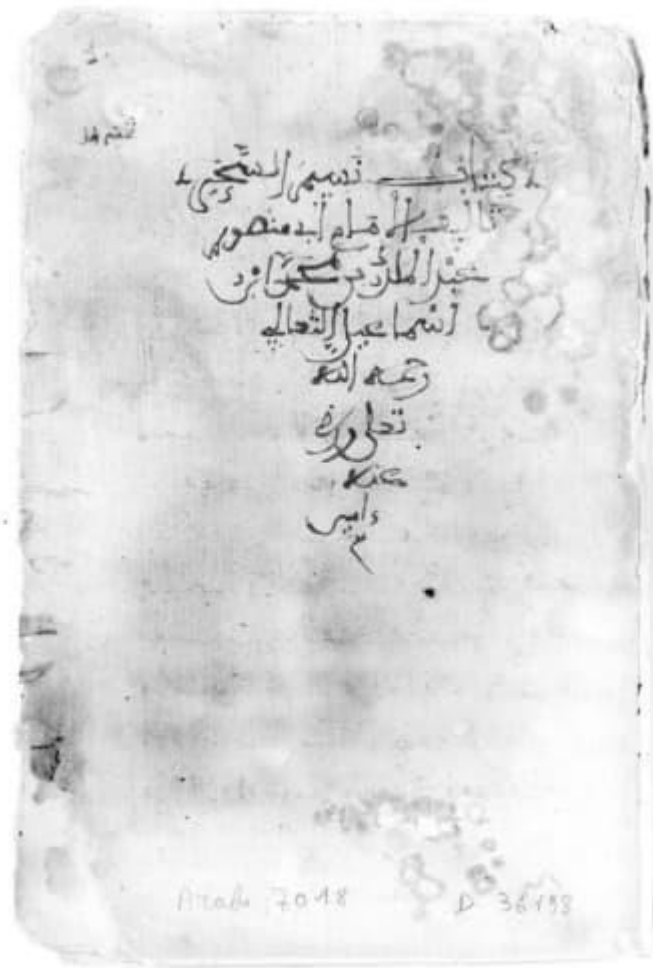 كتاب نسيم السحر
تاليف الامام ابي منصور
عبد الملك بن محمد بن
اسماعيل الثعالبي
رحمه الله
تعلى ورضي
عنه
ءامين
Arabe 7018 D 36198